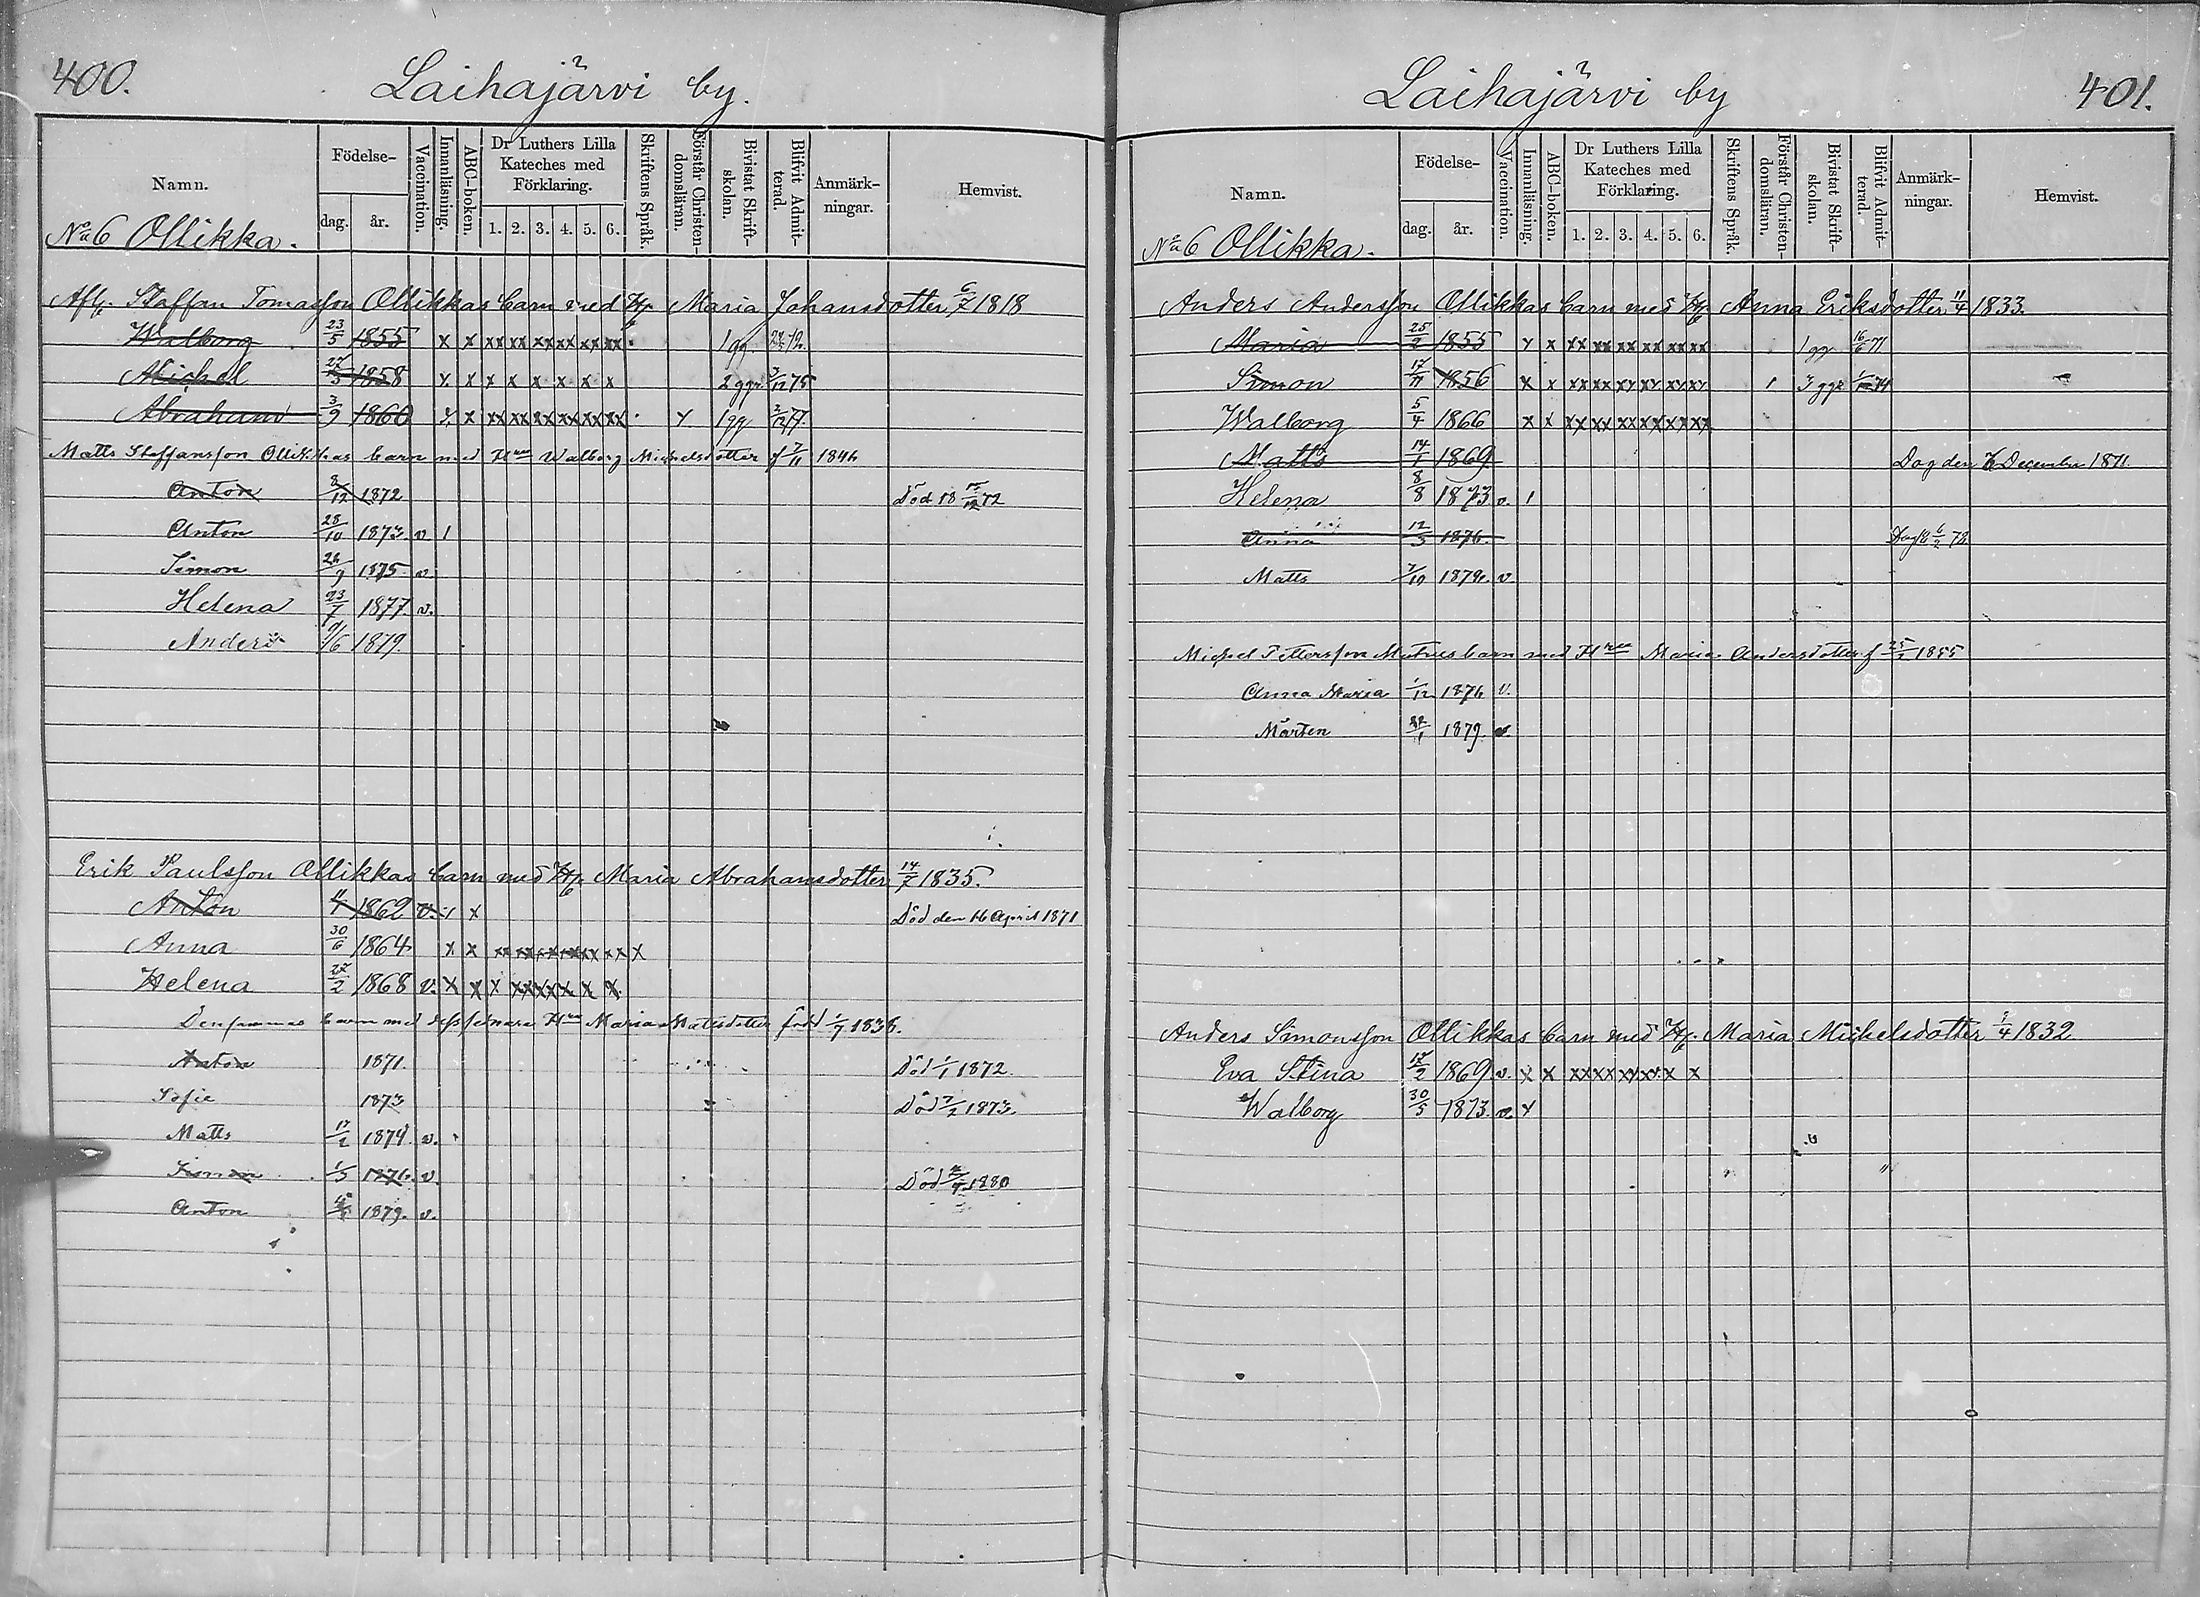 400.
Laihajärvi by.
Namn.
Födelse-
dag. år.
Vaccination.
Innanläsning.
ABC-boken.
Dr Luthers Lilla Kateches med Förklaring.
1. 2. 3. 4. 5. 6.
Skriftens Språk.
Förstår Christendomsläran.
Bivistat Skriftskolan.
Blifvit Admitterad.
Anmärkningar.
Hemvist.
No 6 Ollikka.
Staffan Tomasson Ollikkas barn med Maria Johansdotter 6/7 1818
Walborg 23/5 1855 x x xx xx xx xx xx xx 1 gg.
Michel 1858 x x x x x x x x 2 ggr 3/12 75
Abraham 3/9 1860 x x xx xx xx xx xx xx 1 gg
Matts Staffansson Ollikkas barn med Walborg Michelsdotter f 1846
Anton 8/12 1872 Död 18 72
Anton 28/10 1873. v 1
Simon 1875. v.
Helena 23/7 1877. v.
Anders 1879.
Erik Paulsson Ollikkas barn med Maria Abrahamsdotter 14/7 1835.
Anton 1862 v. 1 x Död den 16 April 1871
Anna 30/6 1864 x x xx xx xx xx xx xx x
Helena 27/2 1868 v. x x x xx xx x x x
Densammes barn med Maria Matsdotter född 1/7 1838.
Anton 1871. Död 1/1 1872.
Sofie 1873 Död 7/2 1873.
Matts 17/2 1874. v.
Simon 1/5 1876. v. Död 1880
Anton 1879. v.
Laihajärvi by
401.
Namn.
Födelse-
dag. år.
Vaccination.
Innanläsning.
ABC-boken.
Dr Luthers Lilla Kateches med Förklaring.
1. 2. 3. 4. 5. 6.
Skriftens Språk.
Förstår Christendomsläran.
Bivistat Skriftskolan.
Blifvit Admitterad.
Anmärkningar.
Hemvist.
No 6 Ollikka.
Anders Andersson Ollikkas barn med Anna Eriksdotter 11/4 1833.
Maria 25/2 1855 x x xx xx xx xx xx xx 1 gg 16/6 71
Simon 17/11 1856 x x xx xx xx xx xx xx 1 3 ggr 74
Walborg 5/4 1866 x x xx xx xx xx xx xx
Matts 14/1 1869 Dog den 7 December 1871.
Helena 8/8 1873 v. 1
Anna 12/3 1876.
Matts 7/10 1879. v.
Michel Pettersson barn med Maria Andersdotter f 25/2 1855
Anna Maria 1/12 1876 v.
Mårten 1879. v.
Anders Simonsson Ollikkas barn med Maria Michelsdotter 1832.
Eva Stina 17/2 1869 v. x x xx xx xx xx x x
Walborg 30/5 1873. v. x